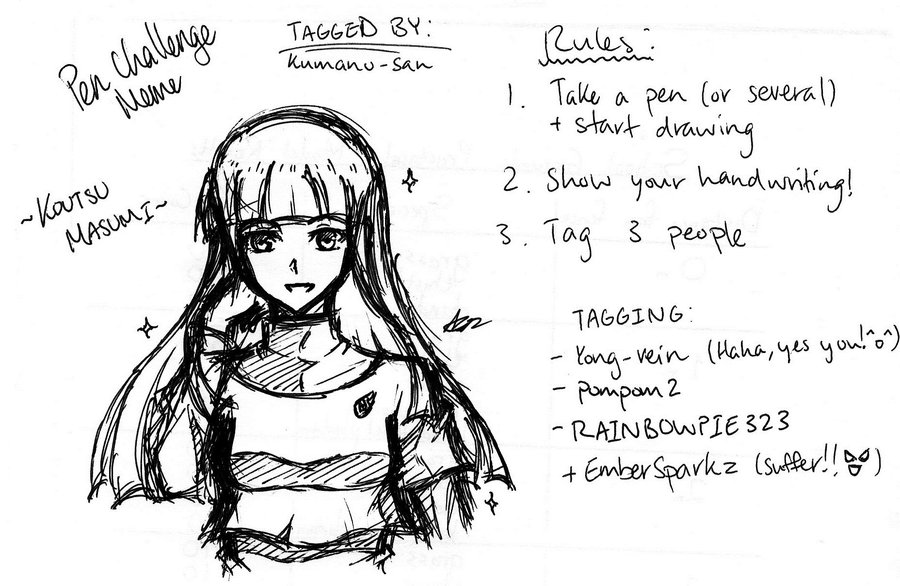 Pen Challenge
Meme
TAGGED BY:
Kumano-san
~KOUTSU
MASUMI~
Rules:
1. Take a pen (or several)
+ start drawing
2. Show your handwriting!
3. Tag 3 people
TAGGING:
- Yong-vein (Haha, yes you! ^o^)
- pompom2
- RAINBOWPIE323
+ EmberSparkz (suffer!!)